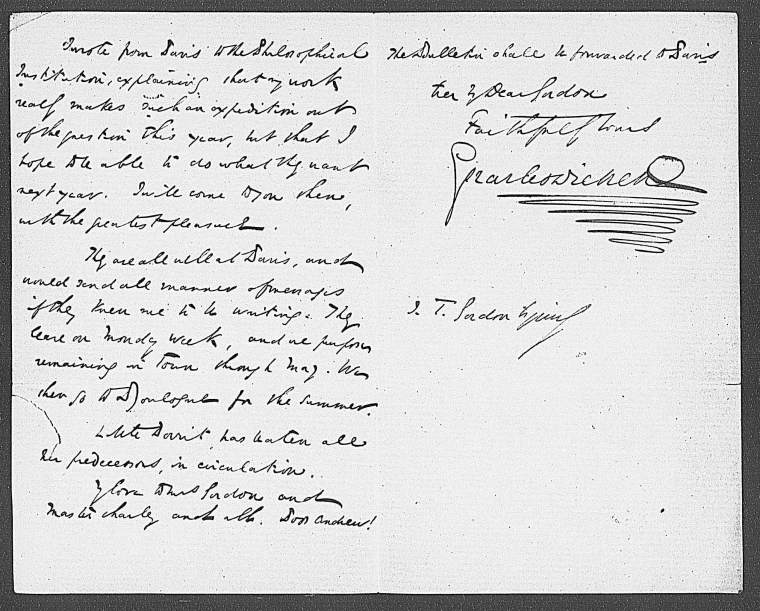 I wrote from Paris to the Philosophical
Institution, explaining that my work
really makes such an expedition out
of the question this year, but that I
hope to be able to do what they want
next year. I will come to you then,
with the greatest pleasure.
They are all well at Paris, and
would send all manner of messages
if they knew me to be writing. They
leave on Monday week, and we purpose
remaining in Town through May. We
then go to Boulogne for the summer.
Little Dorrit, has beaten all
her predecessors, in circulation.
My love to Mrs Gordon and
Master Charley and all. Poor Andrew!
The Bulletin shall be forwarded to Paris
Ever My Dear Gordon
Faithfully Yours
Charles Dickens
T. Gordon Esquire